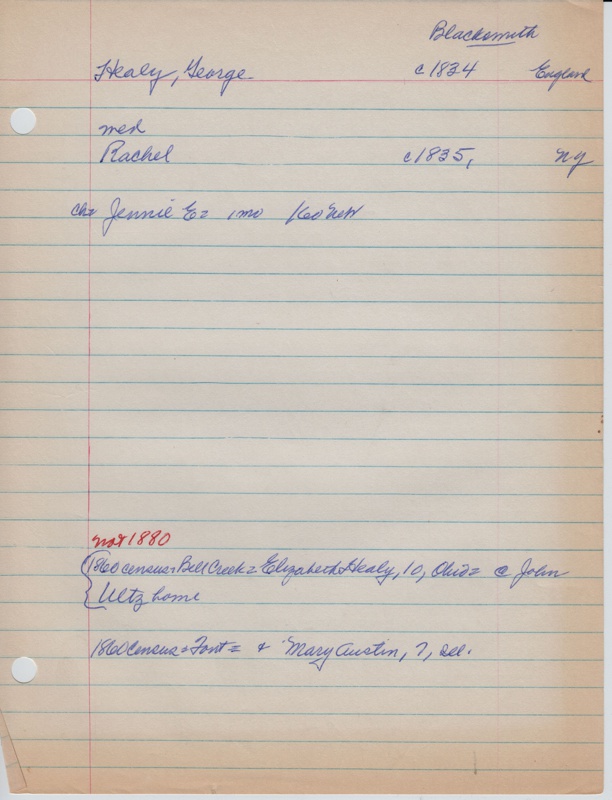 Blacksmith
Healy, George c1834 England
med
Rachel c1835, NY
ch= Jennie E= 1mo
not 1880
1860 census= Bell Creek= Elizabeth Healy, 10, Ohio= @ John
Ultz home
1860 Census= Font= + Mary Austin, 7,